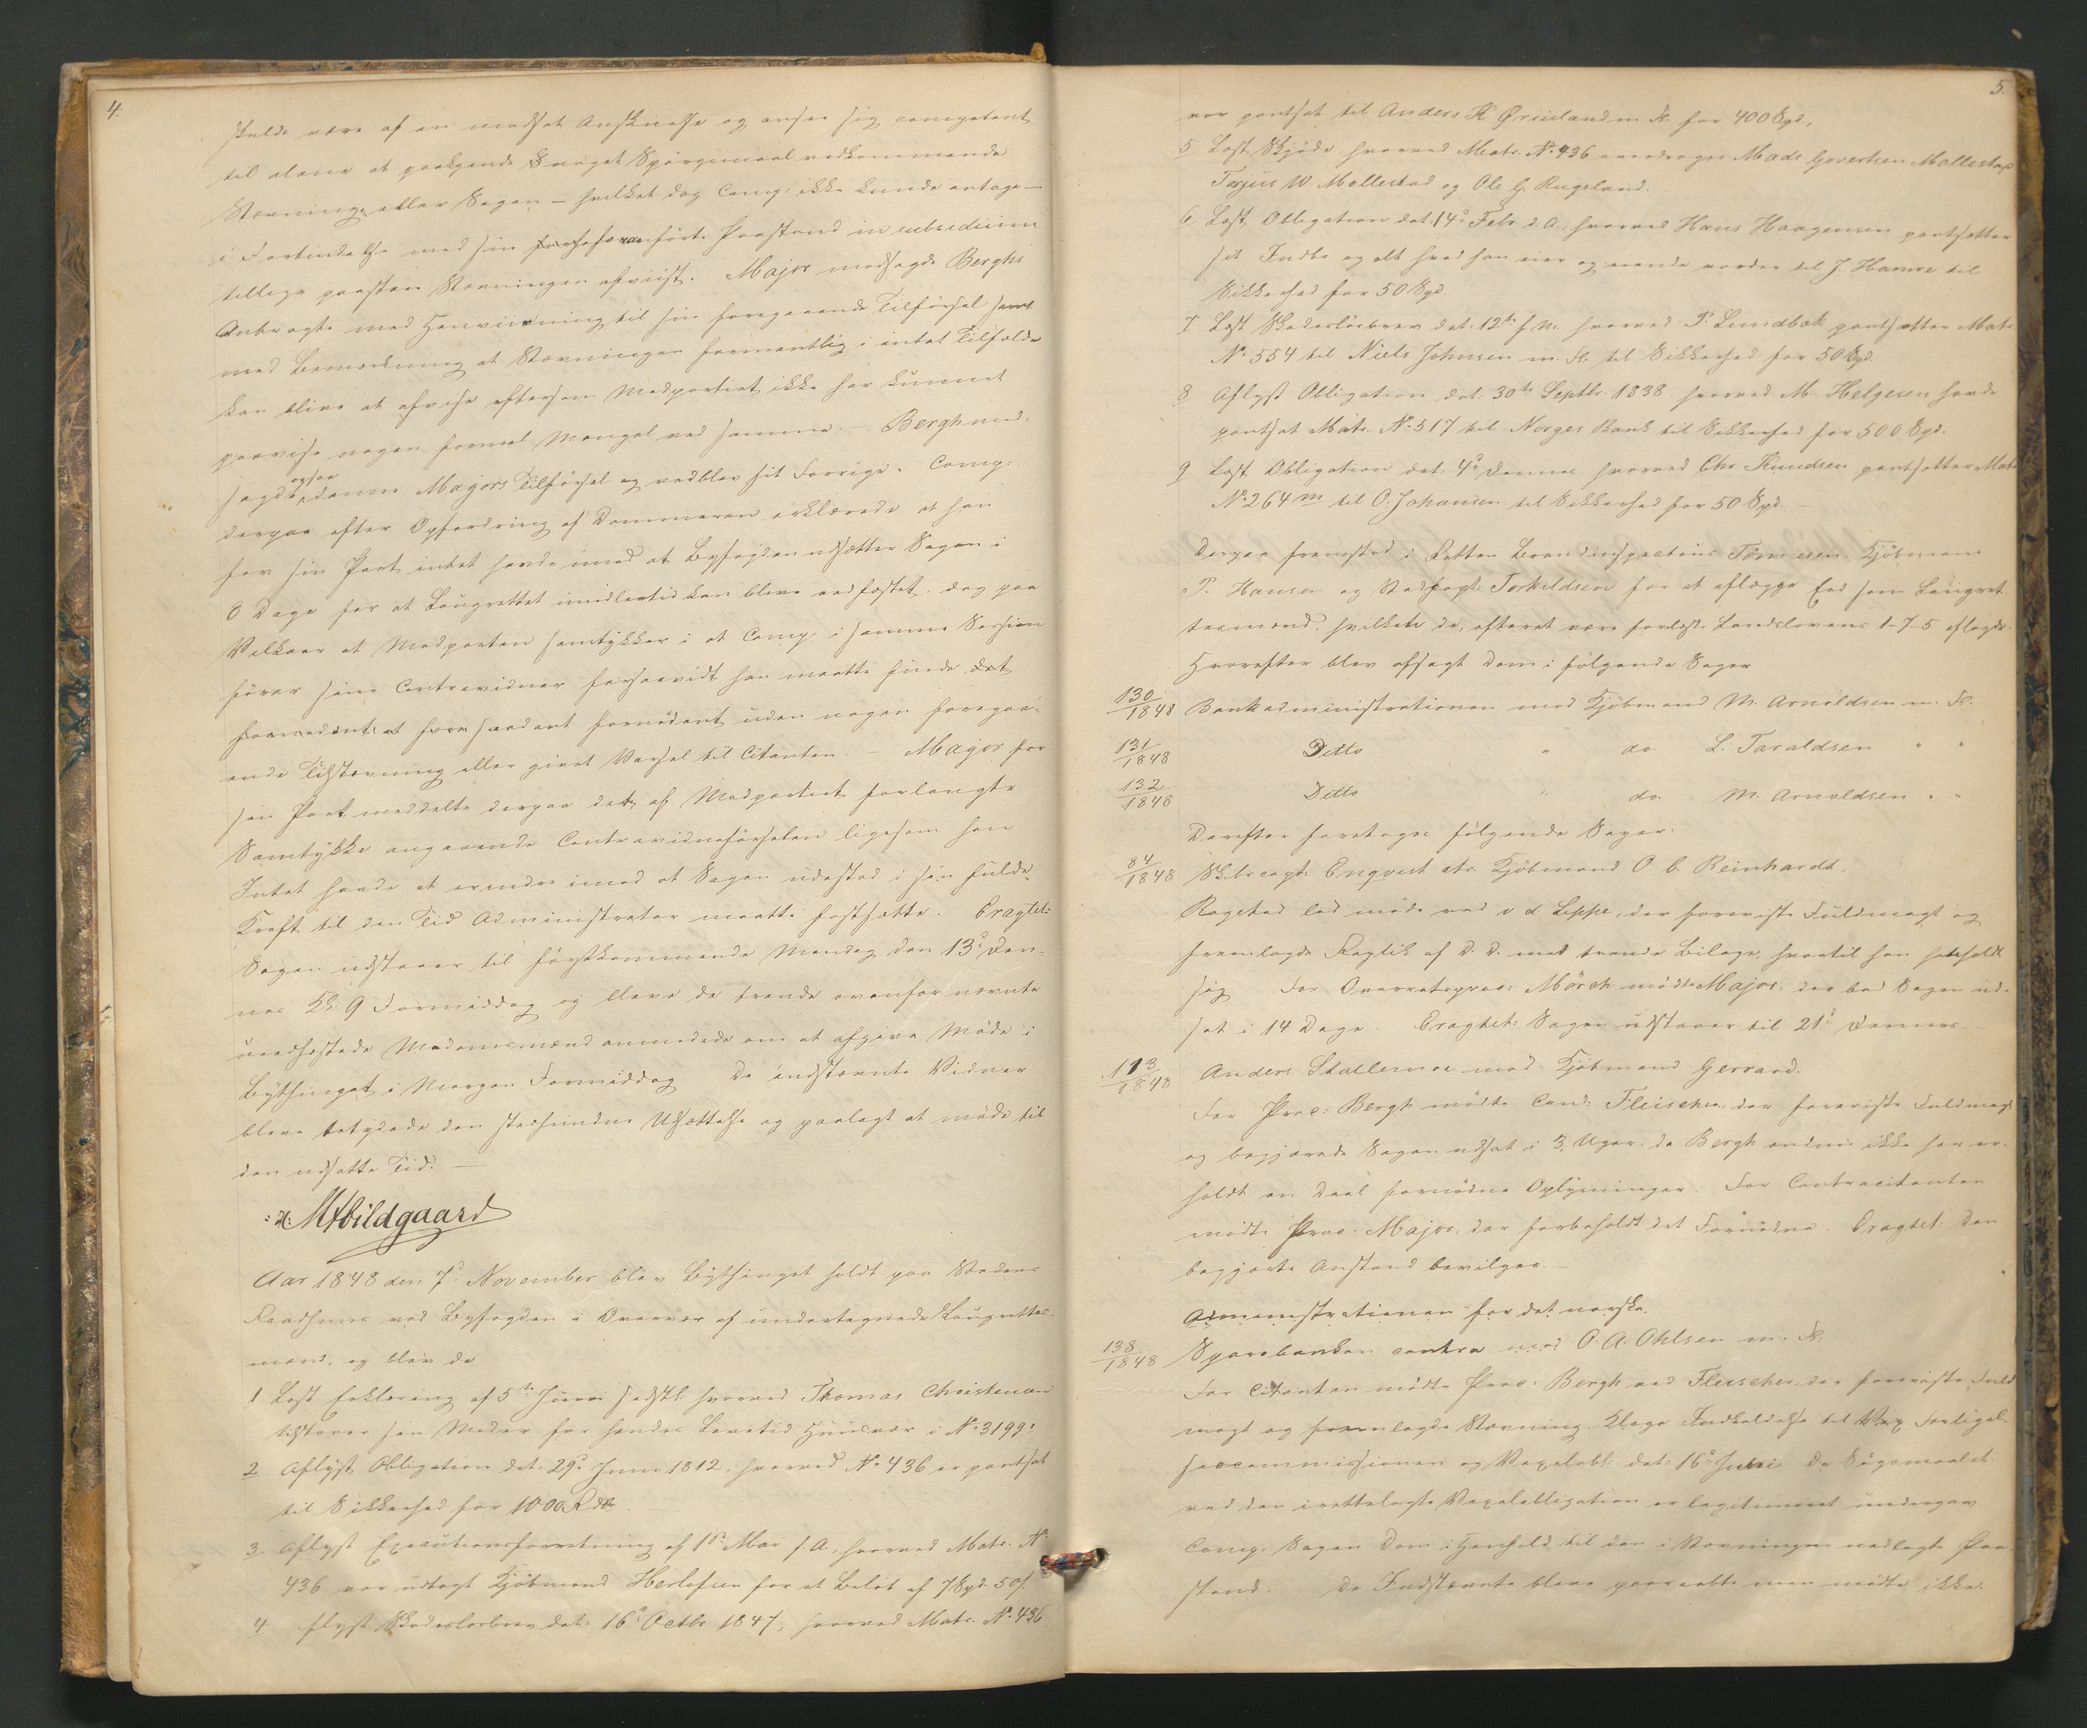 4.
skulde være af en modsat Anskuelse og anser sig competent
til alene at paakjende Spørgsmaal vedkommende
Stævningen eller Sagen – hvilket dog Comp: ikke kunde antage –
i Forbindelse med sin foranførte Paastand in subsidium
tillige paastaa Stævningen afviist. Major modsagde Berghs
Anbragte med Henviisning til sin foregaaende Tilførsel samt
med Bemærkning at Stævningen formentlig i intet Tilfælde
kan blive at afvise eftersom Modpartiet ikke har kunnet
paavise nogen formel Mangel ved samme. – Bergh mod-
sagde ogsaa denne Majors Tilførsel og vedblev sit Forrige. Comp:
derpaa efter Opfordring af Dommeren erklærede at han
for sin Part intet havde imod at Byfogden udsætter Sagen i
8 Dage for at Laugrettet imidlertid kan blive edfæstet, dog paa
Vilkaar at Modparten samtykker i at Comp. i samme Session
fører sine Contravidner forsaavidt han maatte finde det
saadant fornødent uden nogen foregaa-
ende Tilstævning eller givet Varsel til Citanten. – Major for
sin Part meddelte derpaa det af Modpartiet forlangte
Samtykke angaaende Contravidneførselen ligesom han
Intet havde at erindre imod at Sagen udestod i sin fulde
Kraft til den Tid Administrator maatte fastsætte. Eragtet:
Sagen udstaaer til førstkommende Mandag den 13de den-
nes Kl: 9 Formiddag og bleve de trende ovenfor nævnte
uedfæstede Meddomsmænd anmodede om at afgive Møde i
Bythinget i Morgen Formiddag. De indstævnte Vidner
bleve betydede den stedfundne Udsættelse og paalagt at møde til
den udsatte Tid. –
M Abildgaard
Aar 1848 den 7de November blev Bythinget holdt paa Stadens
Raadhuus ved Byfogden i Overvær af undertegnede Laugrettes-
mænd, og blev da
1 Læst Erklæring af 5te Juni sidstl: hvorved Thomas Christensen
tilstaaer sin Moder for hendes Levetid Huusvær i No 319 9.
2 Aflyst Obligation dat: 29de Juni 1812, hvorved No 436 er pantsat
til Sikkerhed for 1000 Rdl.
3 Aflyst Executionsforretning af 1ste Mai f. A., hvorved Matr. No
436 var udtagt Kjøbmand Herlofsen for et Beløb af 7 Spd. 50 s.
4 Aflyst Skadesløsbrev dat: 16de Octbr 1847, hvorved Matr. No. 436
5.
var pantsat til Anders K Ørüiland m. Fl. for 400 Spd.
5 Læst Skjøde, hvorved Matr. No. 436 overdrages Mads Govertsen Mollestad
Torjus W. Mollestad og Ole G. Rugsland.
6 Læst Obligation dat: 14de Febr. d. A., hvorved Hans Haagensen pantsætter
sit Indbo og alt hvad han eier og eiende vorder til J. Hamre til
Sikkerhed for 50 Spd.
7 Læst Skadesløsbrev dat: 12te f. M. hvorved P. Lundbak pantsætter Matr.
No. 554 til Niels Johnsen m. Fl. til Sikkerhed for 50 Spd.
8 Aflyst Obligation dat: 30te Septbr 1838 hvorved M. Helgesen havde
pantsat Matr. No. 517 til Norges Bank til Sikkerhed for 500 Spd.
9 Læst Obligation dat: 4de dennes hvorved Chr. Knudsen pantsætter Matr.
No. 264 m til O. Johansen til Sikkerhed for 50 Spd.
Derpaa fremstod i Retten Brandinspecteur Tønnesen, Kjøbmand
P. Hansen og Torkildsen for at aflægge Eed som Laugret-
tesmænd, hvilket de, efterat være forelæst Landslovens 1-7-5 aflagde.
Hvorefter blev afsagt Dom i følgende Sager
130/1848 Bankadministrationen mod Kjøbmand M. Arnoldsen m. Fl.
131/1848 Ditto " do. L. Taraldsen " "
132/1848 Ditto " do. M. Arnoldsen " "
Derefter foretoges følgende Sager:
84/1848 Skibscapt: Enqvist ctr. Kjøbmand O. C. Reinhardt.
Rogstad lod møde ved v. d. Lippe, der foreviste Fuldmagt og
fremlagde Replik af D. D. med trende Bilage, hvortil han henholdt
sig. For Overretsproc: Mørch mødte Major, der bad Sagen ud-
sat i 14 Dage. Eragtet: Sagen udstaaer til 21de dennes.
113/1848 Anders Stallemoe mod Kjøbmand Gerrard.
For Proc: Bergh mødte Cand: Fleischer, der foreviste Fuldmagt
og begjærede Sagen udsat i 3 Uger, da Bergh endnu ikke har er-
holdt en Deel fornødne Oplysninger. For Contracitanten
mødte Proc. Major, der forbeholdt det Fornødne. Eragtet: Den
begjærte Anstand bevilges. –
Administrationen for det norske
138/1848 Sparebanken contra mod O. A. Ohlsen m. Fl.
For Citanten mødte Proc: Bergh ved Fleischer, der foreviste Fuld
magt og fremlagde Stævning, Klage, Indkaldelse til Forligel-
sescommissionen og Vexelobl: dat: 16de Juni. Da Søgsmaalet
ved den irettelagte Vexelobligation er legitimeret undergav
Comp. Sagen Dom i Henhold til den i Stævningen nedlagte Paa
stand. De Indstævnte bleve paaraabte men mødte ikke.